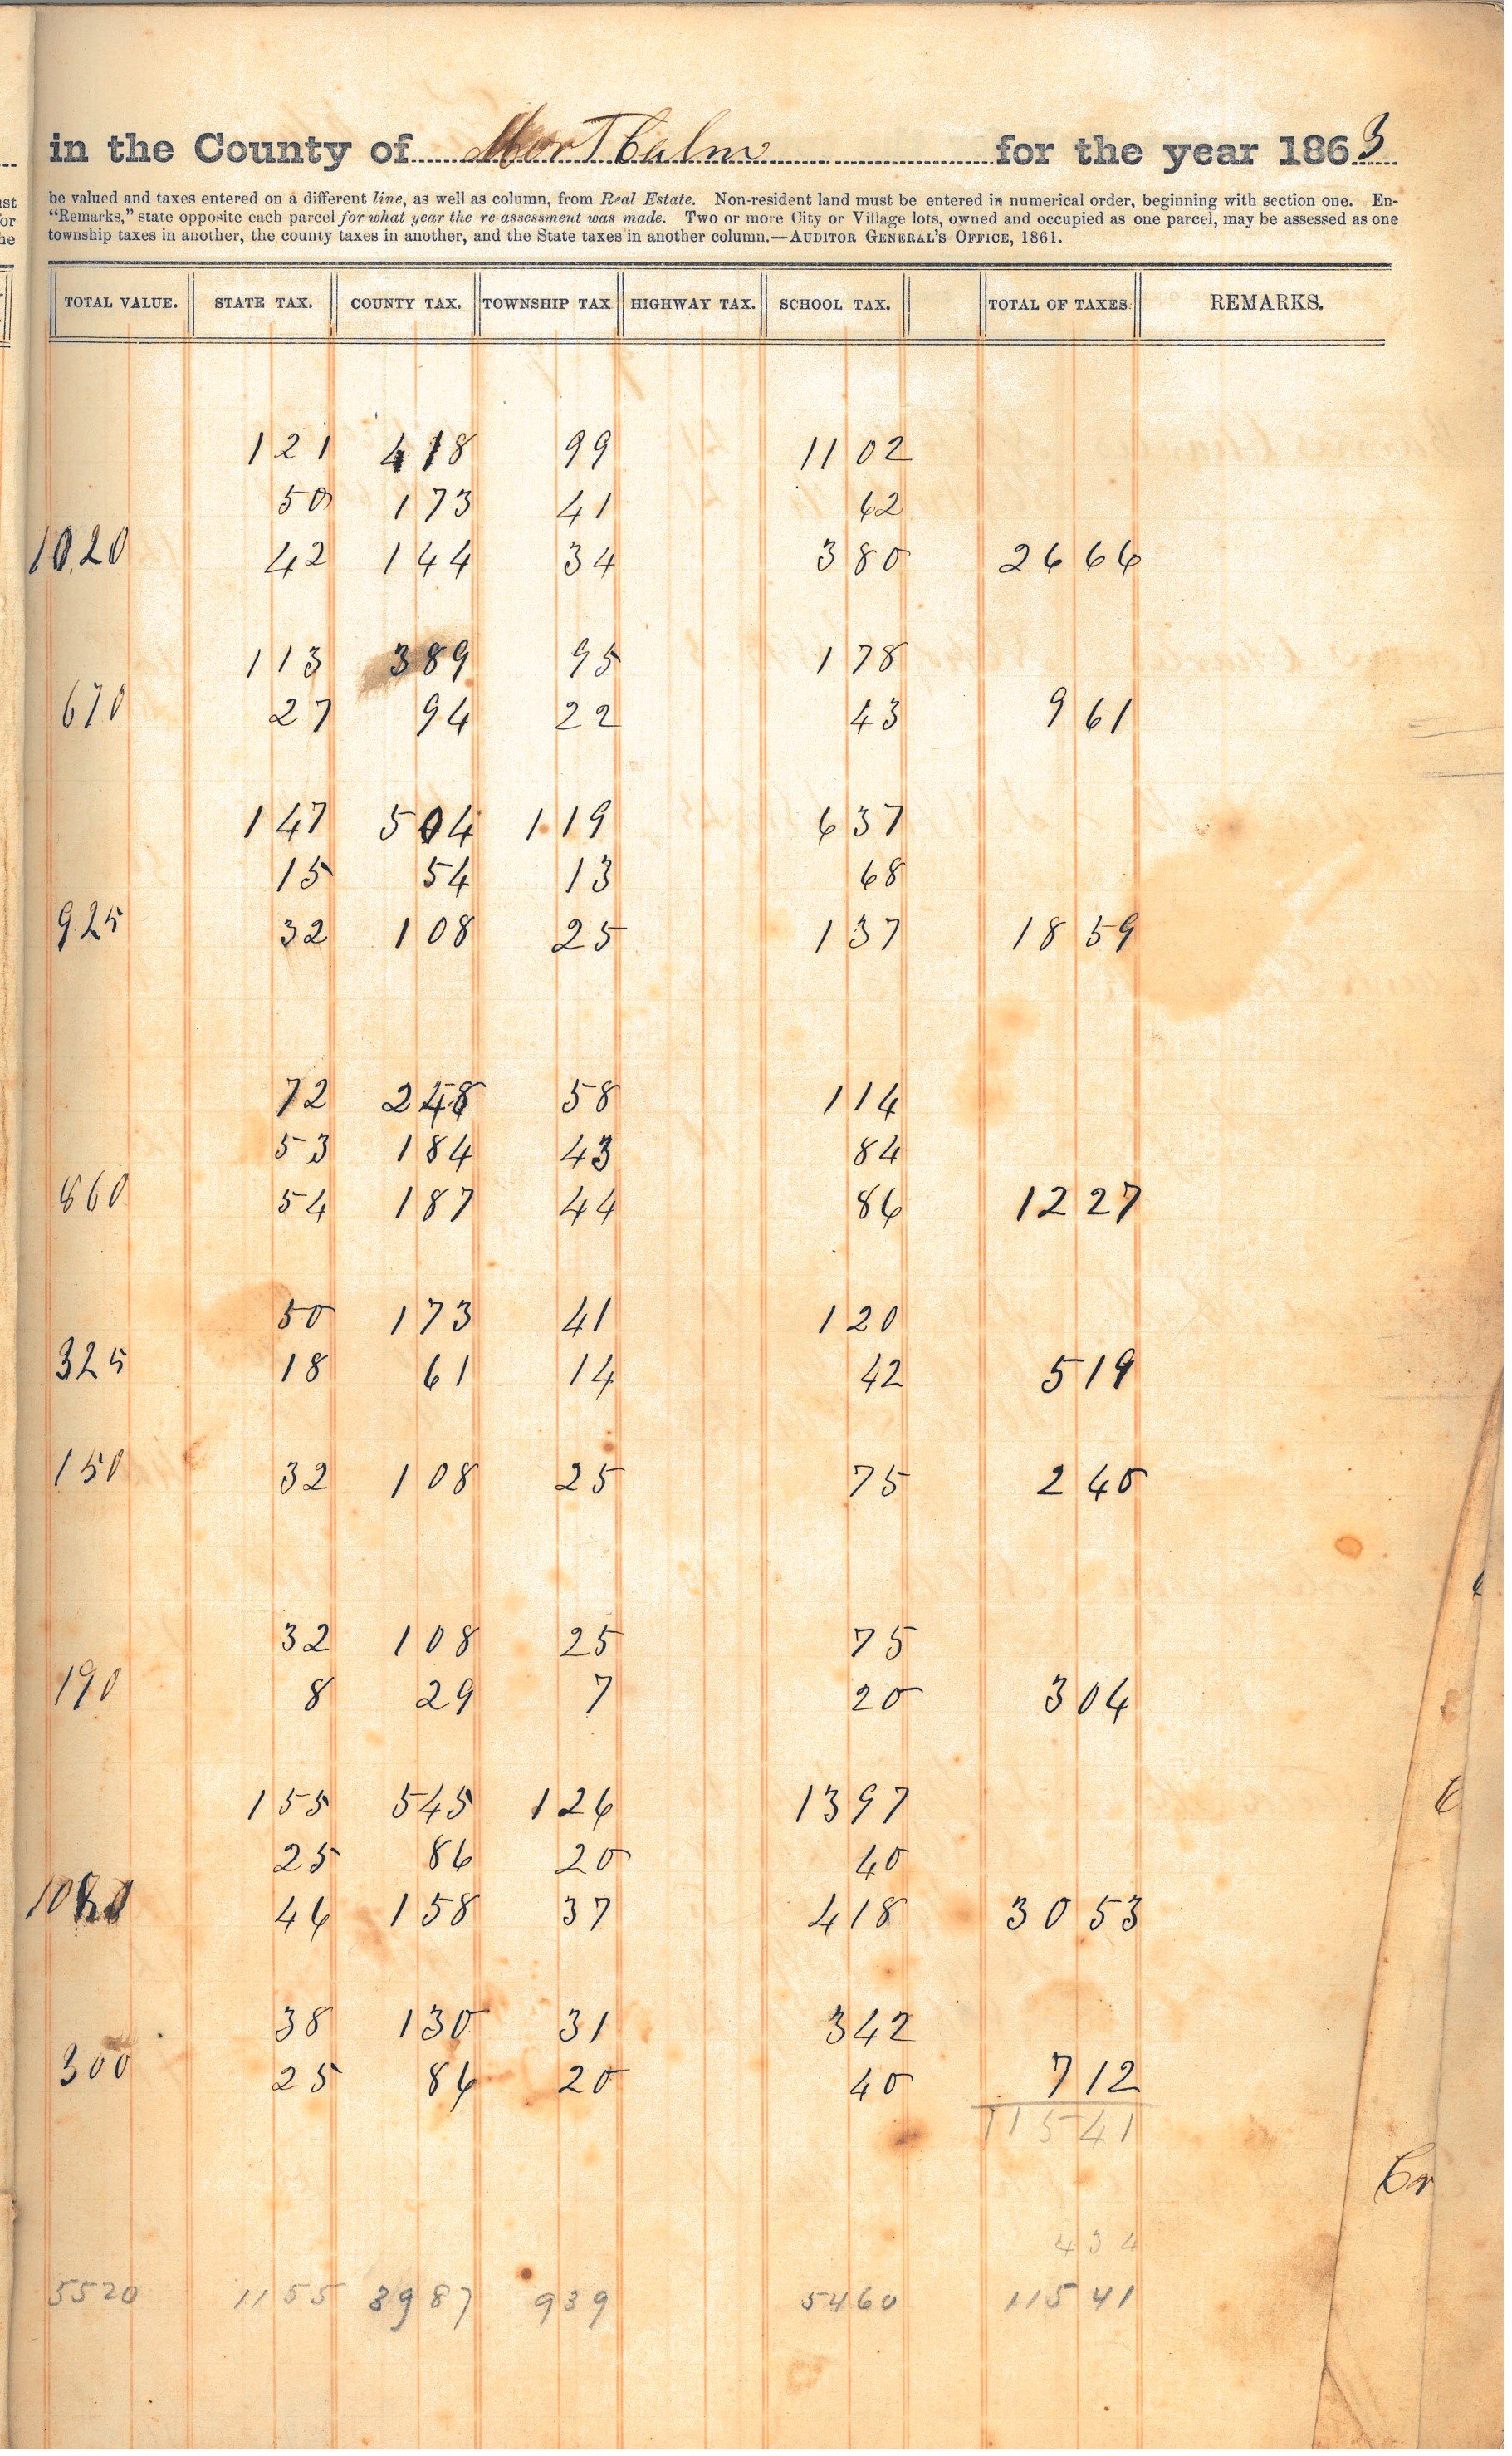 in the County of MontCalm for the year 1863
be valued and taxes entered on a different line, as well as column, from Real Estate. Non-resident land must be entered in numerical order, beginning with section one. En-
"Remarks," state opposite each parcel for what year the re-assessment was made. Two or more City or Village lots, owned and occupied as one parcel, may be assessed as one
township taxes in another, the county taxes in another, and the State taxes in another column.—AUDITOR GENERAL'S OFFICE, 1861.
TOTAL VALUE. STATE TAX. COUNTY TAX. TOWNSHIP TAX HIGHWAY TAX. SCHOOL TAX. TOTAL OF TAXES. REMARKS.
1 21 4 18 99 11 02
50 1 73 41 62
1020 42 1 44 34 3 80 26 66
1 13 3 89 95 1 78
670 27 94 22 43 9 61
1 47 5 04 1 19 6 37
15 54 13 68
925 32 1 08 25 1 37 18 59
72 2 48 58 1 14
53 1 84 43 84
860 54 1 87 44 86 12 27
50 1 73 41 1 20
325 18 61 14 42 5 19
150 32 1 08 25 75 2 40
32 1 08 25 75
190 8 29 7 20 3 04
1 55 5 45 1 26 13 97
25 86 20 40
46 1 58 37 4 18 30 53
38 1 30 31 3 42
300 25 86 20 40 7 12
115 41
4 34
5520 11 55 39 87 9 39 54 60 115 41